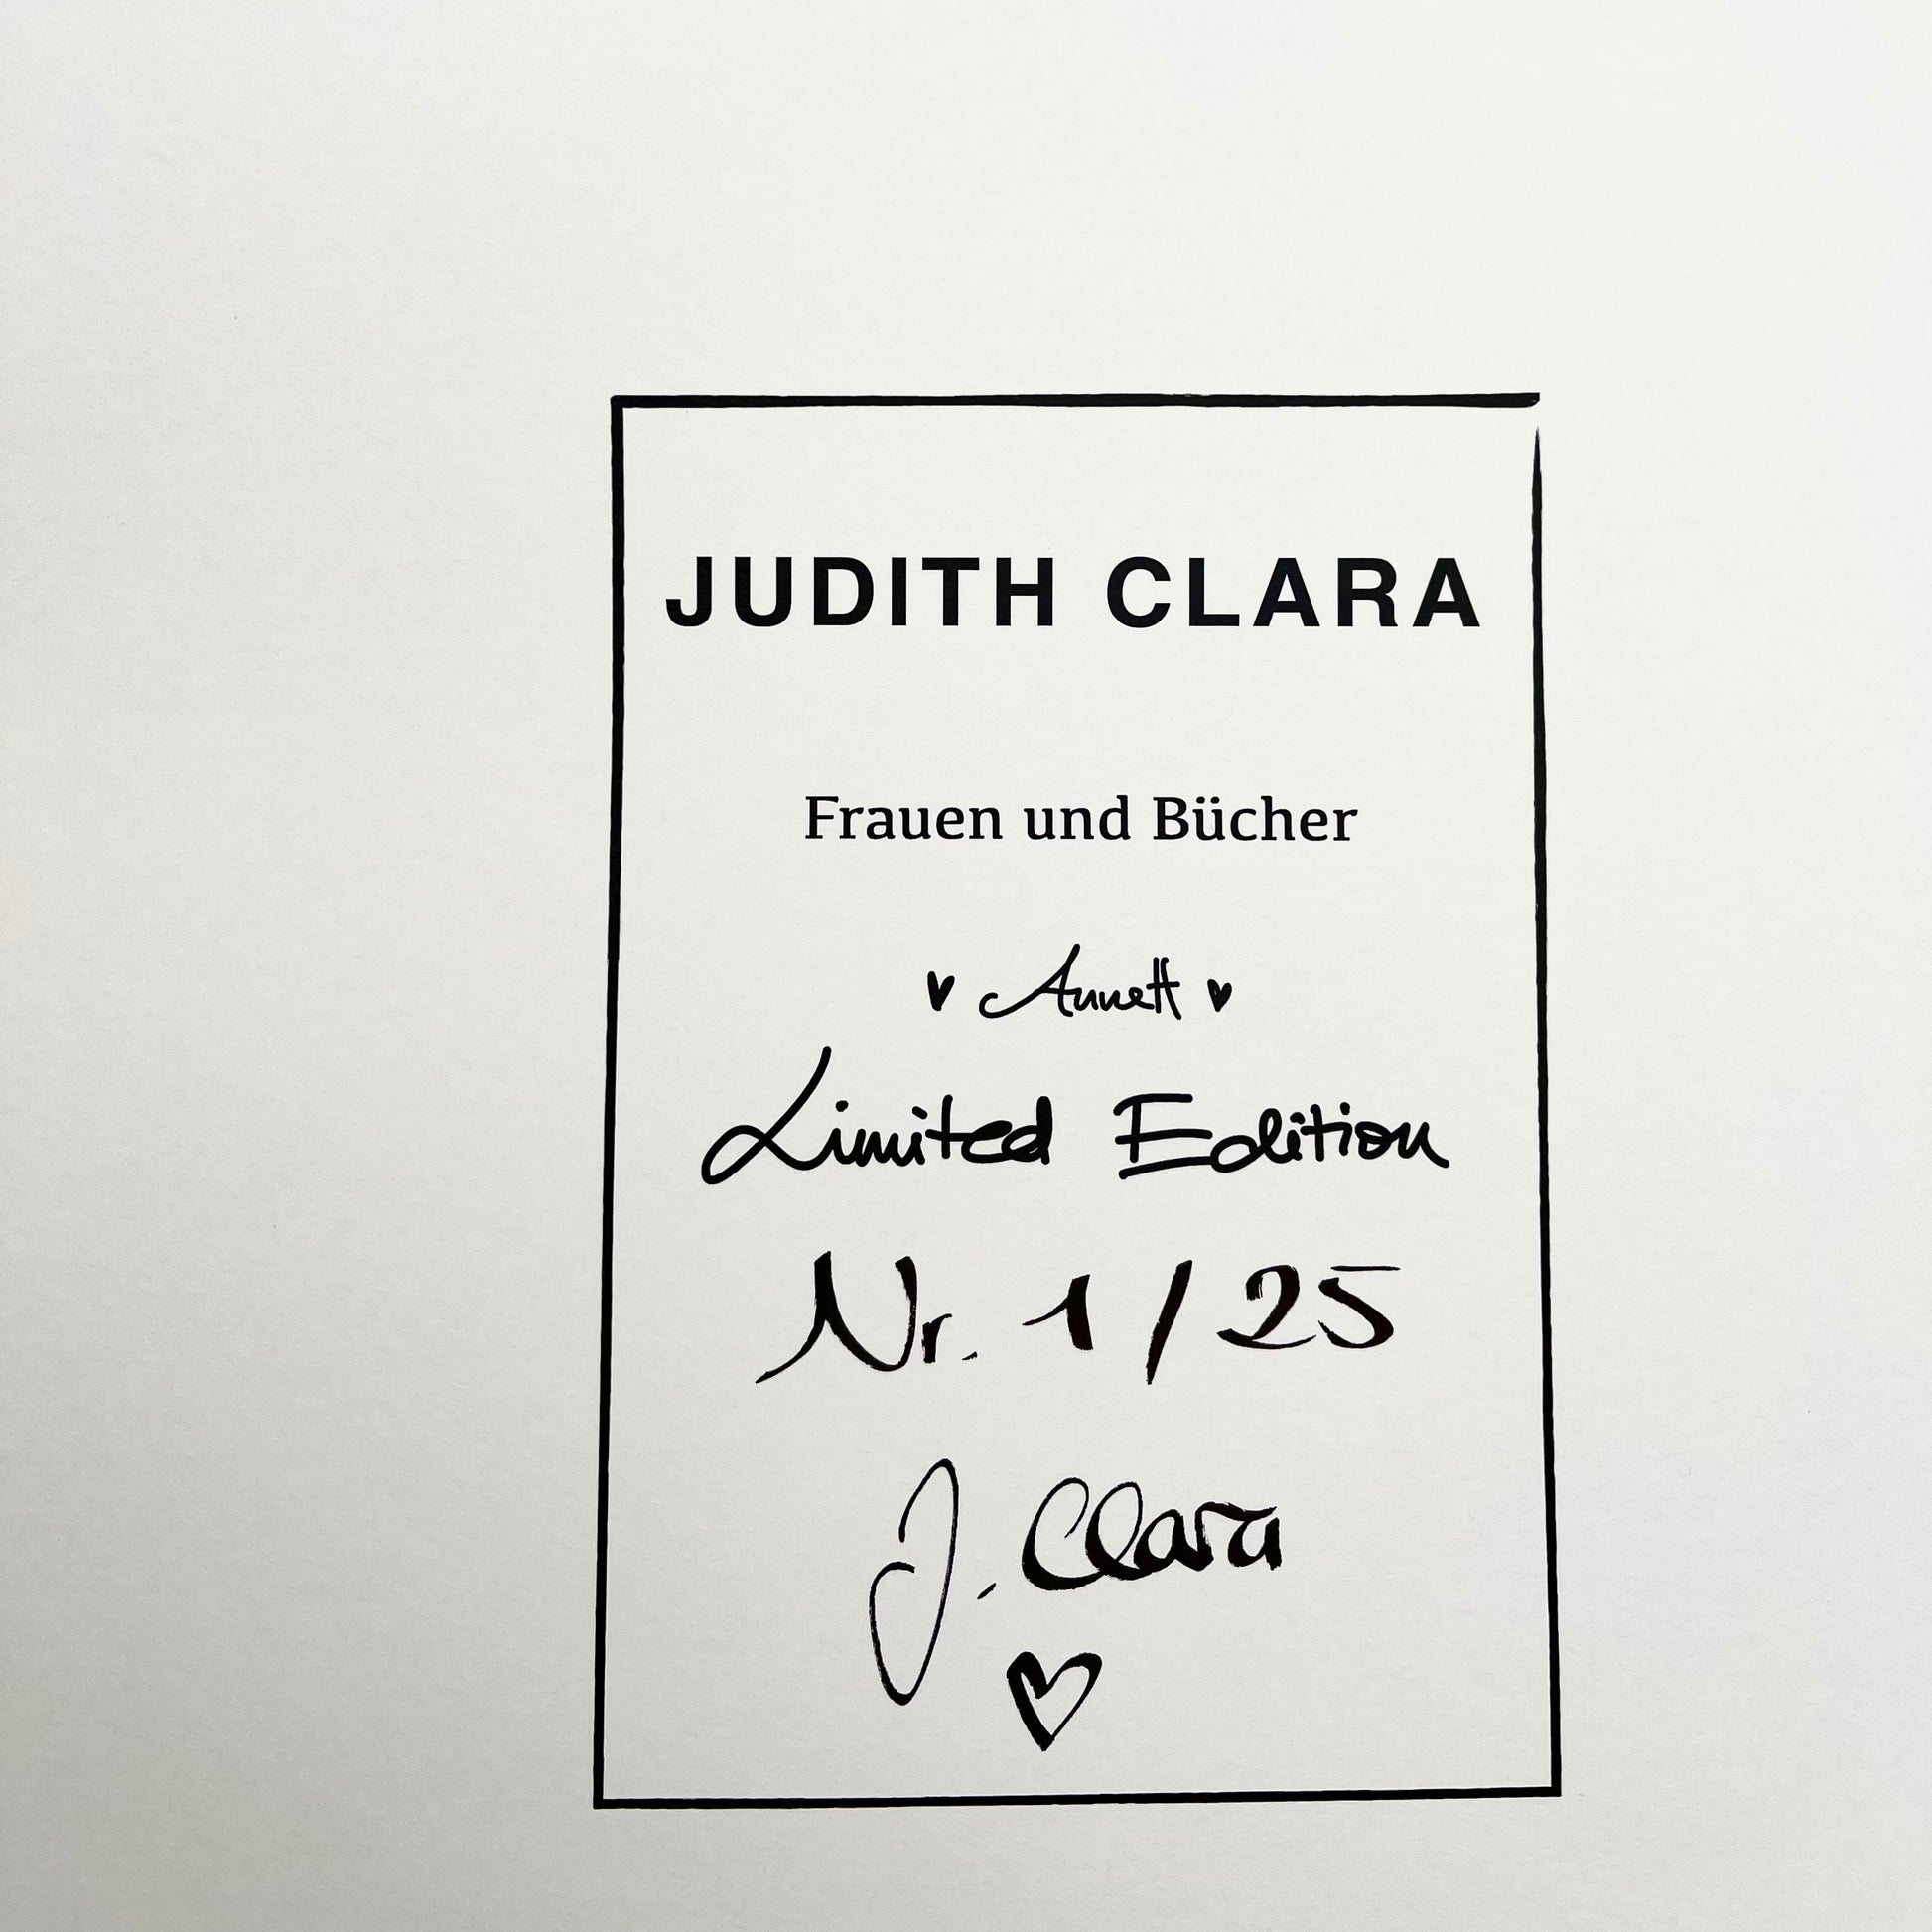 JUDITH CLARA
Frauen und Bücher
♥ Annett ♥
Limited Edition
Nr. 1/25
J. Clara
♡